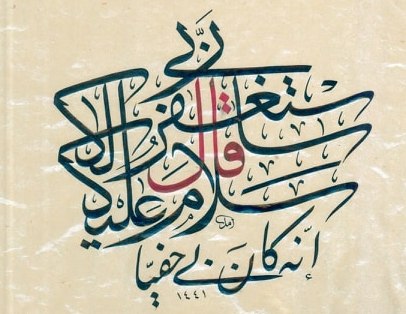 قال
سلام عليك
سأستغفر لك
ربّي
إنّه كَانَ بي حفيّا
١٤٤١